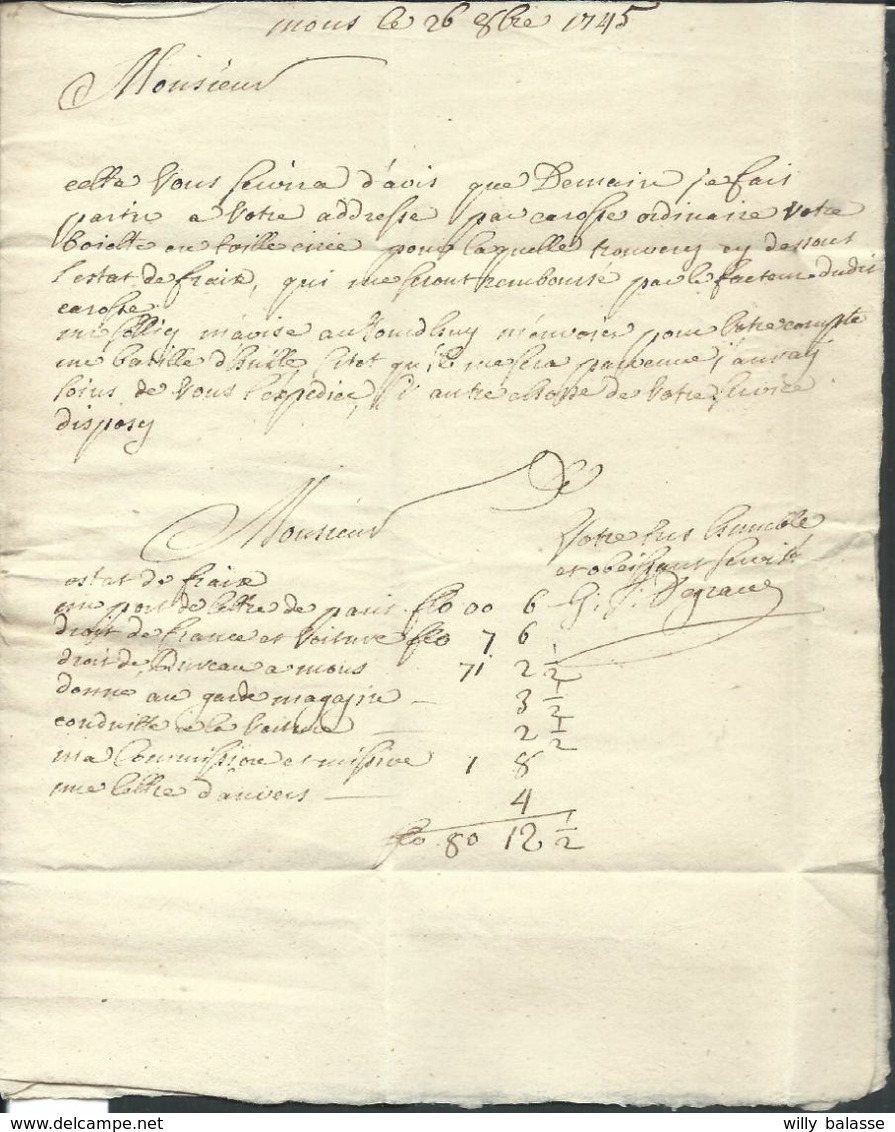 mons le 26 8bre 1745
Monsieur
cette Vous servira d'avis que Demain je fais
partir a Votre addresse par carosse ordinaire Votre
boiette en toille cirée pour laquelle trouverez cy dessous
l'estat de fraix, qui me seront remboursé par le facteur dudit
carosse
mr m'avise aujourdhuy m'envoyer pour Votre compte
une d'huille, sitot qu'il me sera parvenue j'auray
soins de Vous l'expedier, d'autre chosse de Votre service
disposez
De
Monsieur
Votre tres humble
et obeissant servitr
G: J: Degrave
estat de fraix
une port de lettre de paris flo 00 6
droit de france et Voiture flo 7 6
droit de Bureau a mons 71 2 1/2
donné au garde magazin — 3 1/2
conduitte de la Voiture — 2 1/2
ma Commission et missive 1 8
une lettre d'anvers — 4
flo 80 12 1/2
willy balasse